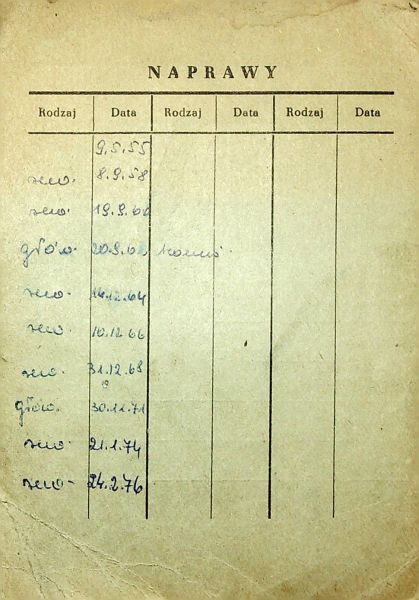 NAPRAWY
Rodzaj Data Rodzaj Data Rodzaj Data
9.5.55
rew. 8.9.58
rew. 19.9.60
głów. 20.9.60
rew. 14.12.64
rew. 10.12.66
rew. 31.12.68
głów. 30.11.71
rew. 21.1.74
rew. 24.2.76